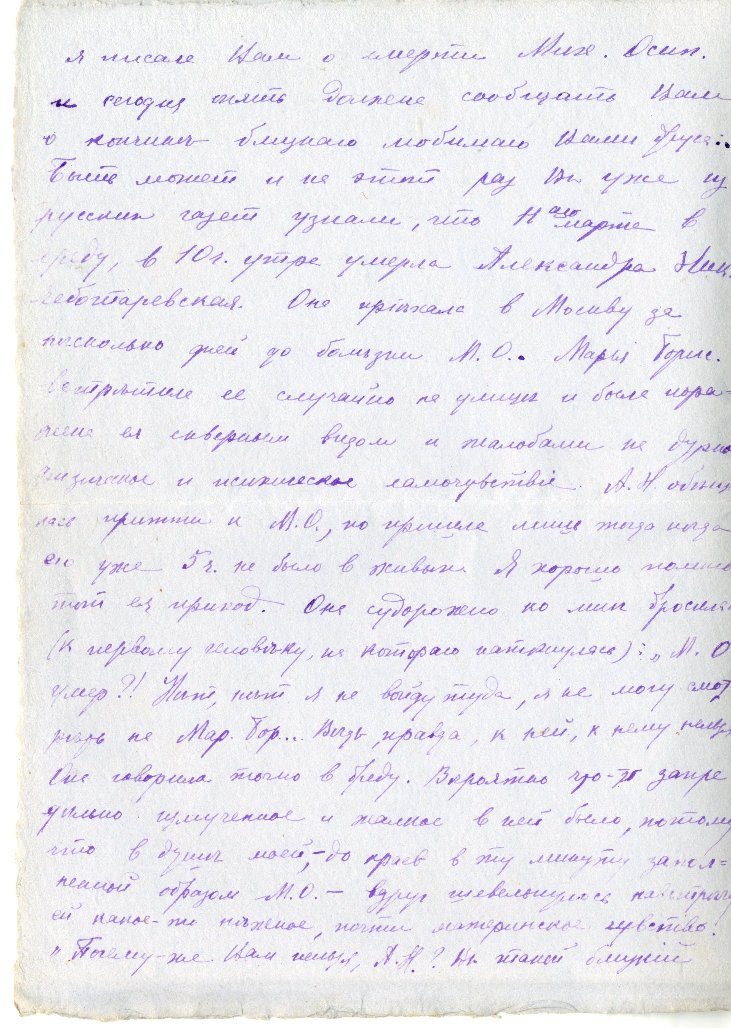 Я писала Вам о смерти Мих. Осип.
и сегодня опять должна сообщать Вам
о кончинѣ близкаго любимаго Вами друга..
Быть может и на этот раз Вы уже из
русских газет узнали, что 11го марта в
среду, в 10 ч. утра умерла Александра Ник.
Чеботаревская. Она пріѣхала в Москву за
нѣсколько дней до болѣзни М.О.. Марья Борис.
встрѣтила ее случайно на улицѣ и была пора-
жена ея скверным видом и жалобами на дурное
физическое и психическое самочувствіе. А.Н. обѣща
лась придти к М.О., но пришла лишь тогда когда
его уже 5 ч. не было в живых. Я хорошо помню
тот ея приход. Она судорожно ко мнѣ бросилась
(к первому человѣку, на котораго наткнулась): „М.О
умер?! Нѣт, нѣт я не войду туда, я не могу смот
рѣть на Мар. Бор... Вѣдь, правда, к ней, к нему нельзя
Она говорила точно в бреду. Вероятно что-то запре
дѣльно измученное и жалкое в ней было, потому
что в душѣ моей, – до краев в ту минуту запол-
ненной образом М.О. – вдруг шевельнулось навстрѣчу
ей какое-то нѣжное, почти материнское чувство:
„Почему-же Вам нельзя, А.Н.? Вы такой близкій